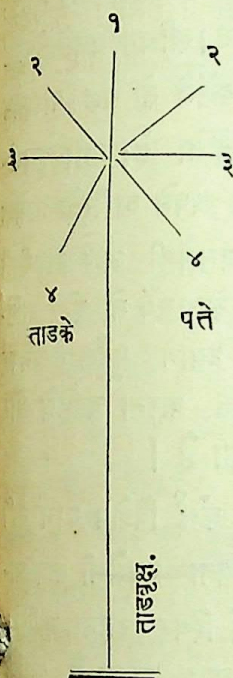 १
२ २
३ ३
४
४
ताडके पत्ते
ताडवृक्ष.